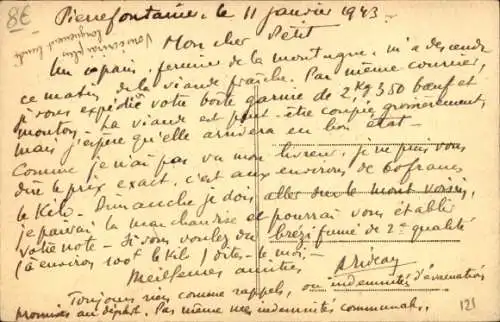 8€
Vous écrirai plus longuement lundi
Pierrefontaine, le 11 janvier 1943.
Mon cher Petit
Un copain, fermier de la montagne, m'a descendu
ce matin de la viande fraîche. Par même courrier,
je vous expédie votre boîte garnie de 2 Kg 350 bœuf et
mouton. La viande est peut-être coupée grossièrement,
mais j'espère qu'elle arrivera en bon état.
Comme je n'ai pas vu mon livreur, je ne puis vous
dire le prix exact. C'est aux environs de 60 francs
le Kilo. Dimanche je dois aller sur le mont voisin,
je paierai la marchandise et pourrai vous établir
votre note. Si vous voulez du brézi fumé de 2e qualité
(à environ 100f le Kil) dites-le moi.
Meilleures amitiés
Toujours rien comme rappels, ou indemnités d'évacuation
promises au départ. Pas même mes indemnités communales.
121